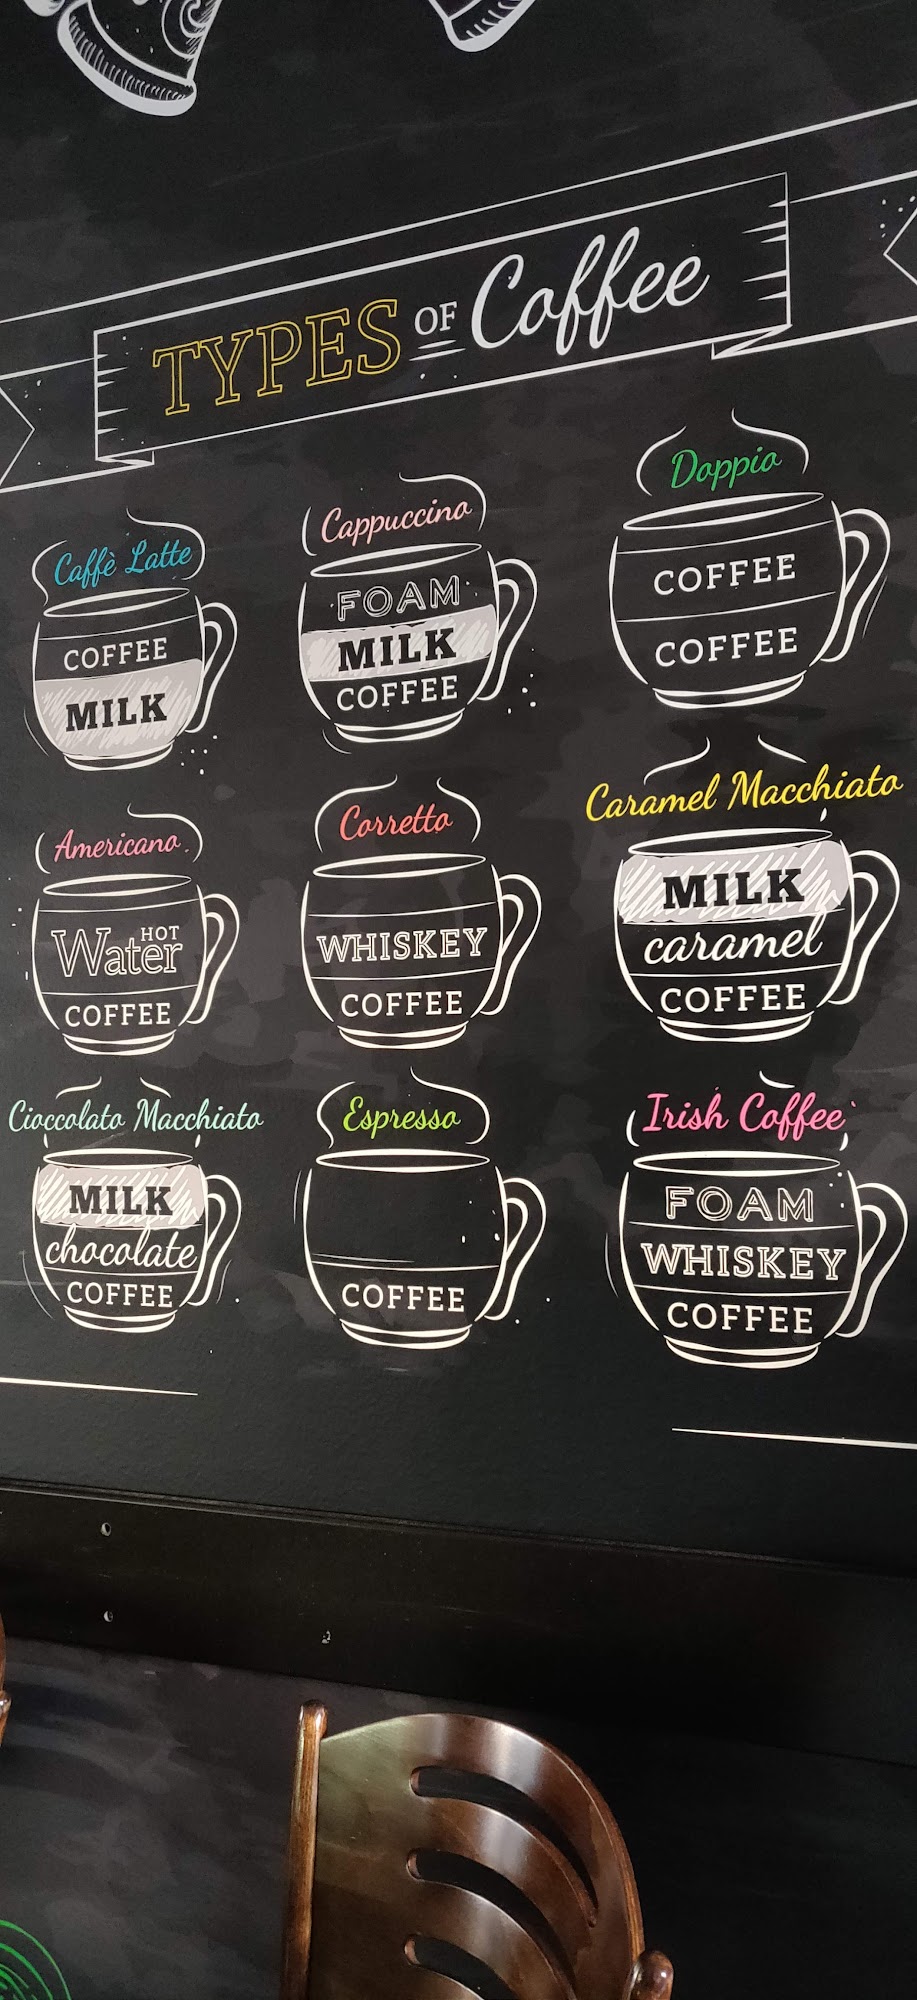 TYPES OF Coffee
Caffè Latte
COFFEE
MILK
Cappuccino
FOAM
MILK
COFFEE
Doppio
COFFEE
COFFEE
Americano
HOT
Water
COFFEE
Corretto
WHISKEY
COFFEE
Caramel Macchiato
MILK
caramel
COFFEE
Cioccolato Macchiato
MILK
chocolate
COFFEE
Espresso
COFFEE
Irish Coffee
FOAM
WHISKEY
COFFEE